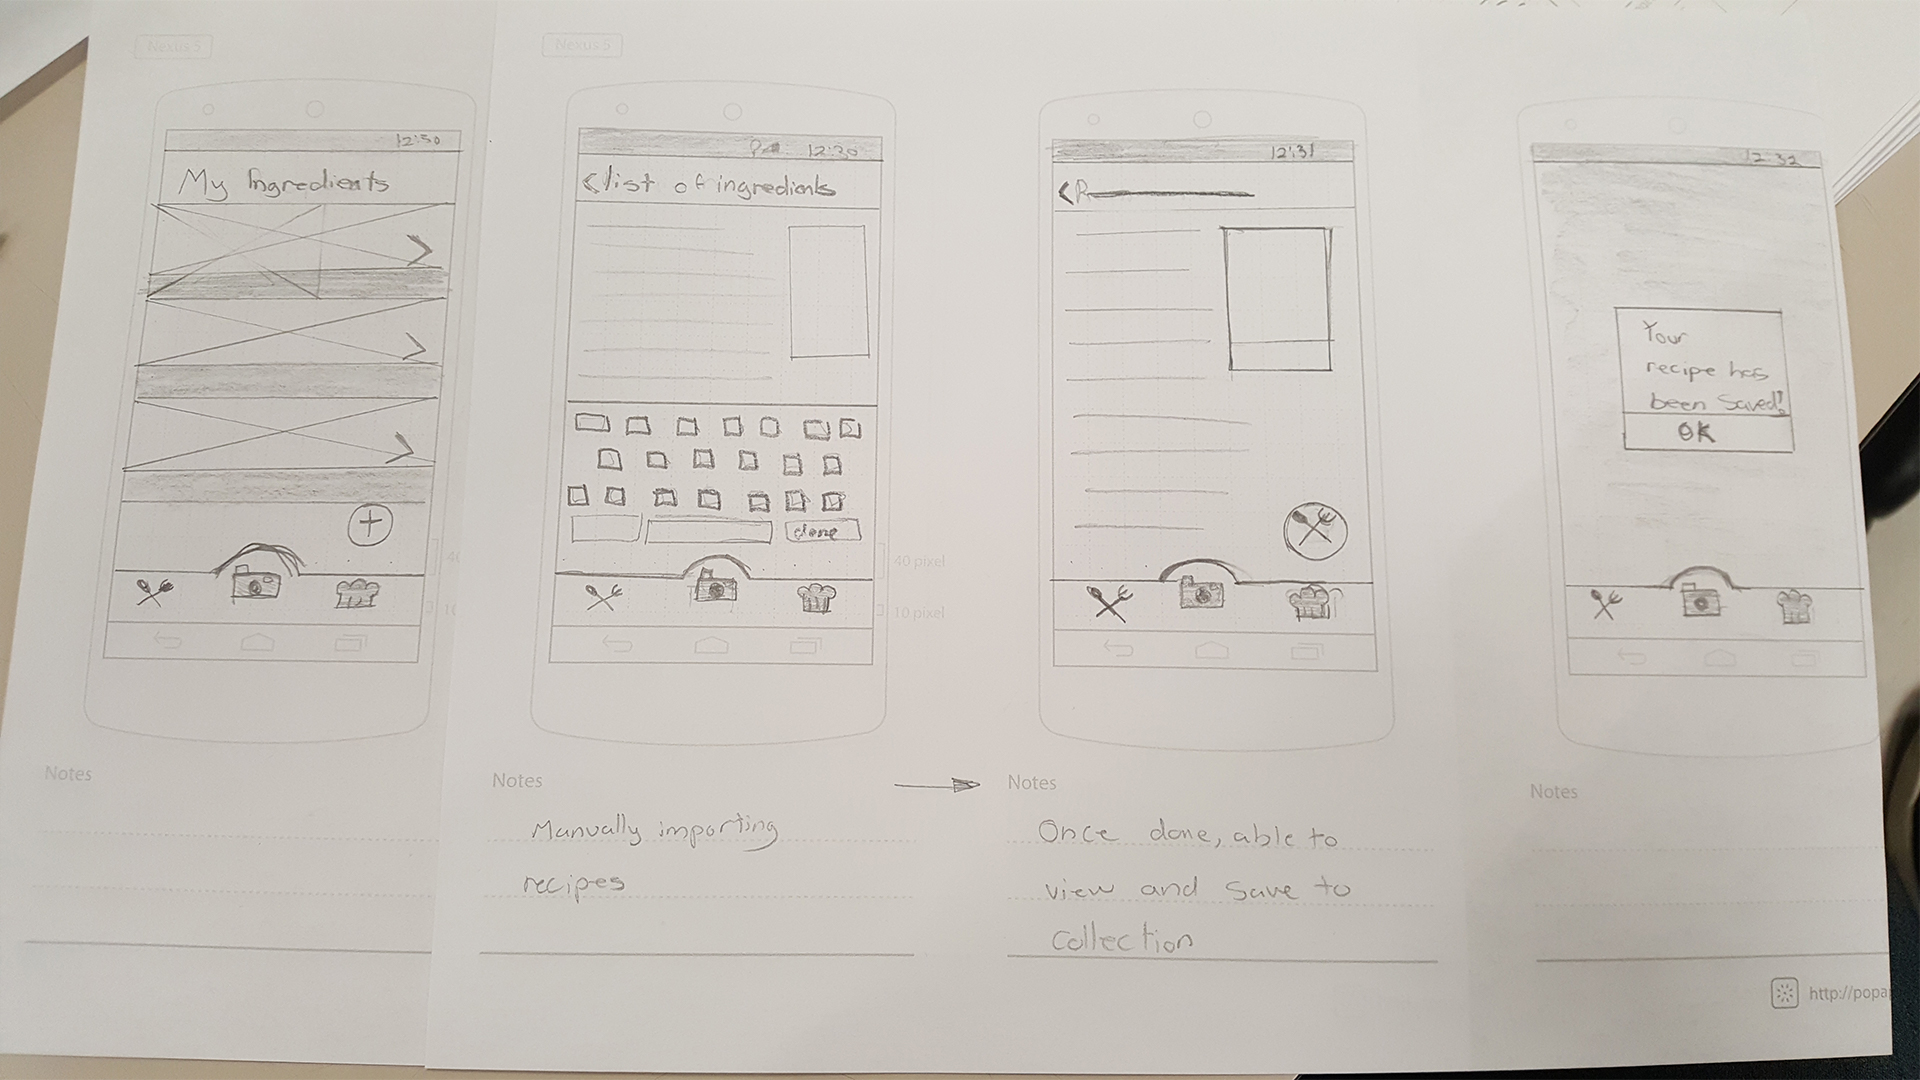 Nexus 5
12:30
My Ingredients
Notes
Nexus 5
12:30
<list of ingredients
done
40 pixel
10 pixel
Notes
Manually importing
recipes
12:31
<R
Notes
Once done, able to
view and save to
collection
12:32
Your
recipe has
been saved!
OK
Notes
http://popa